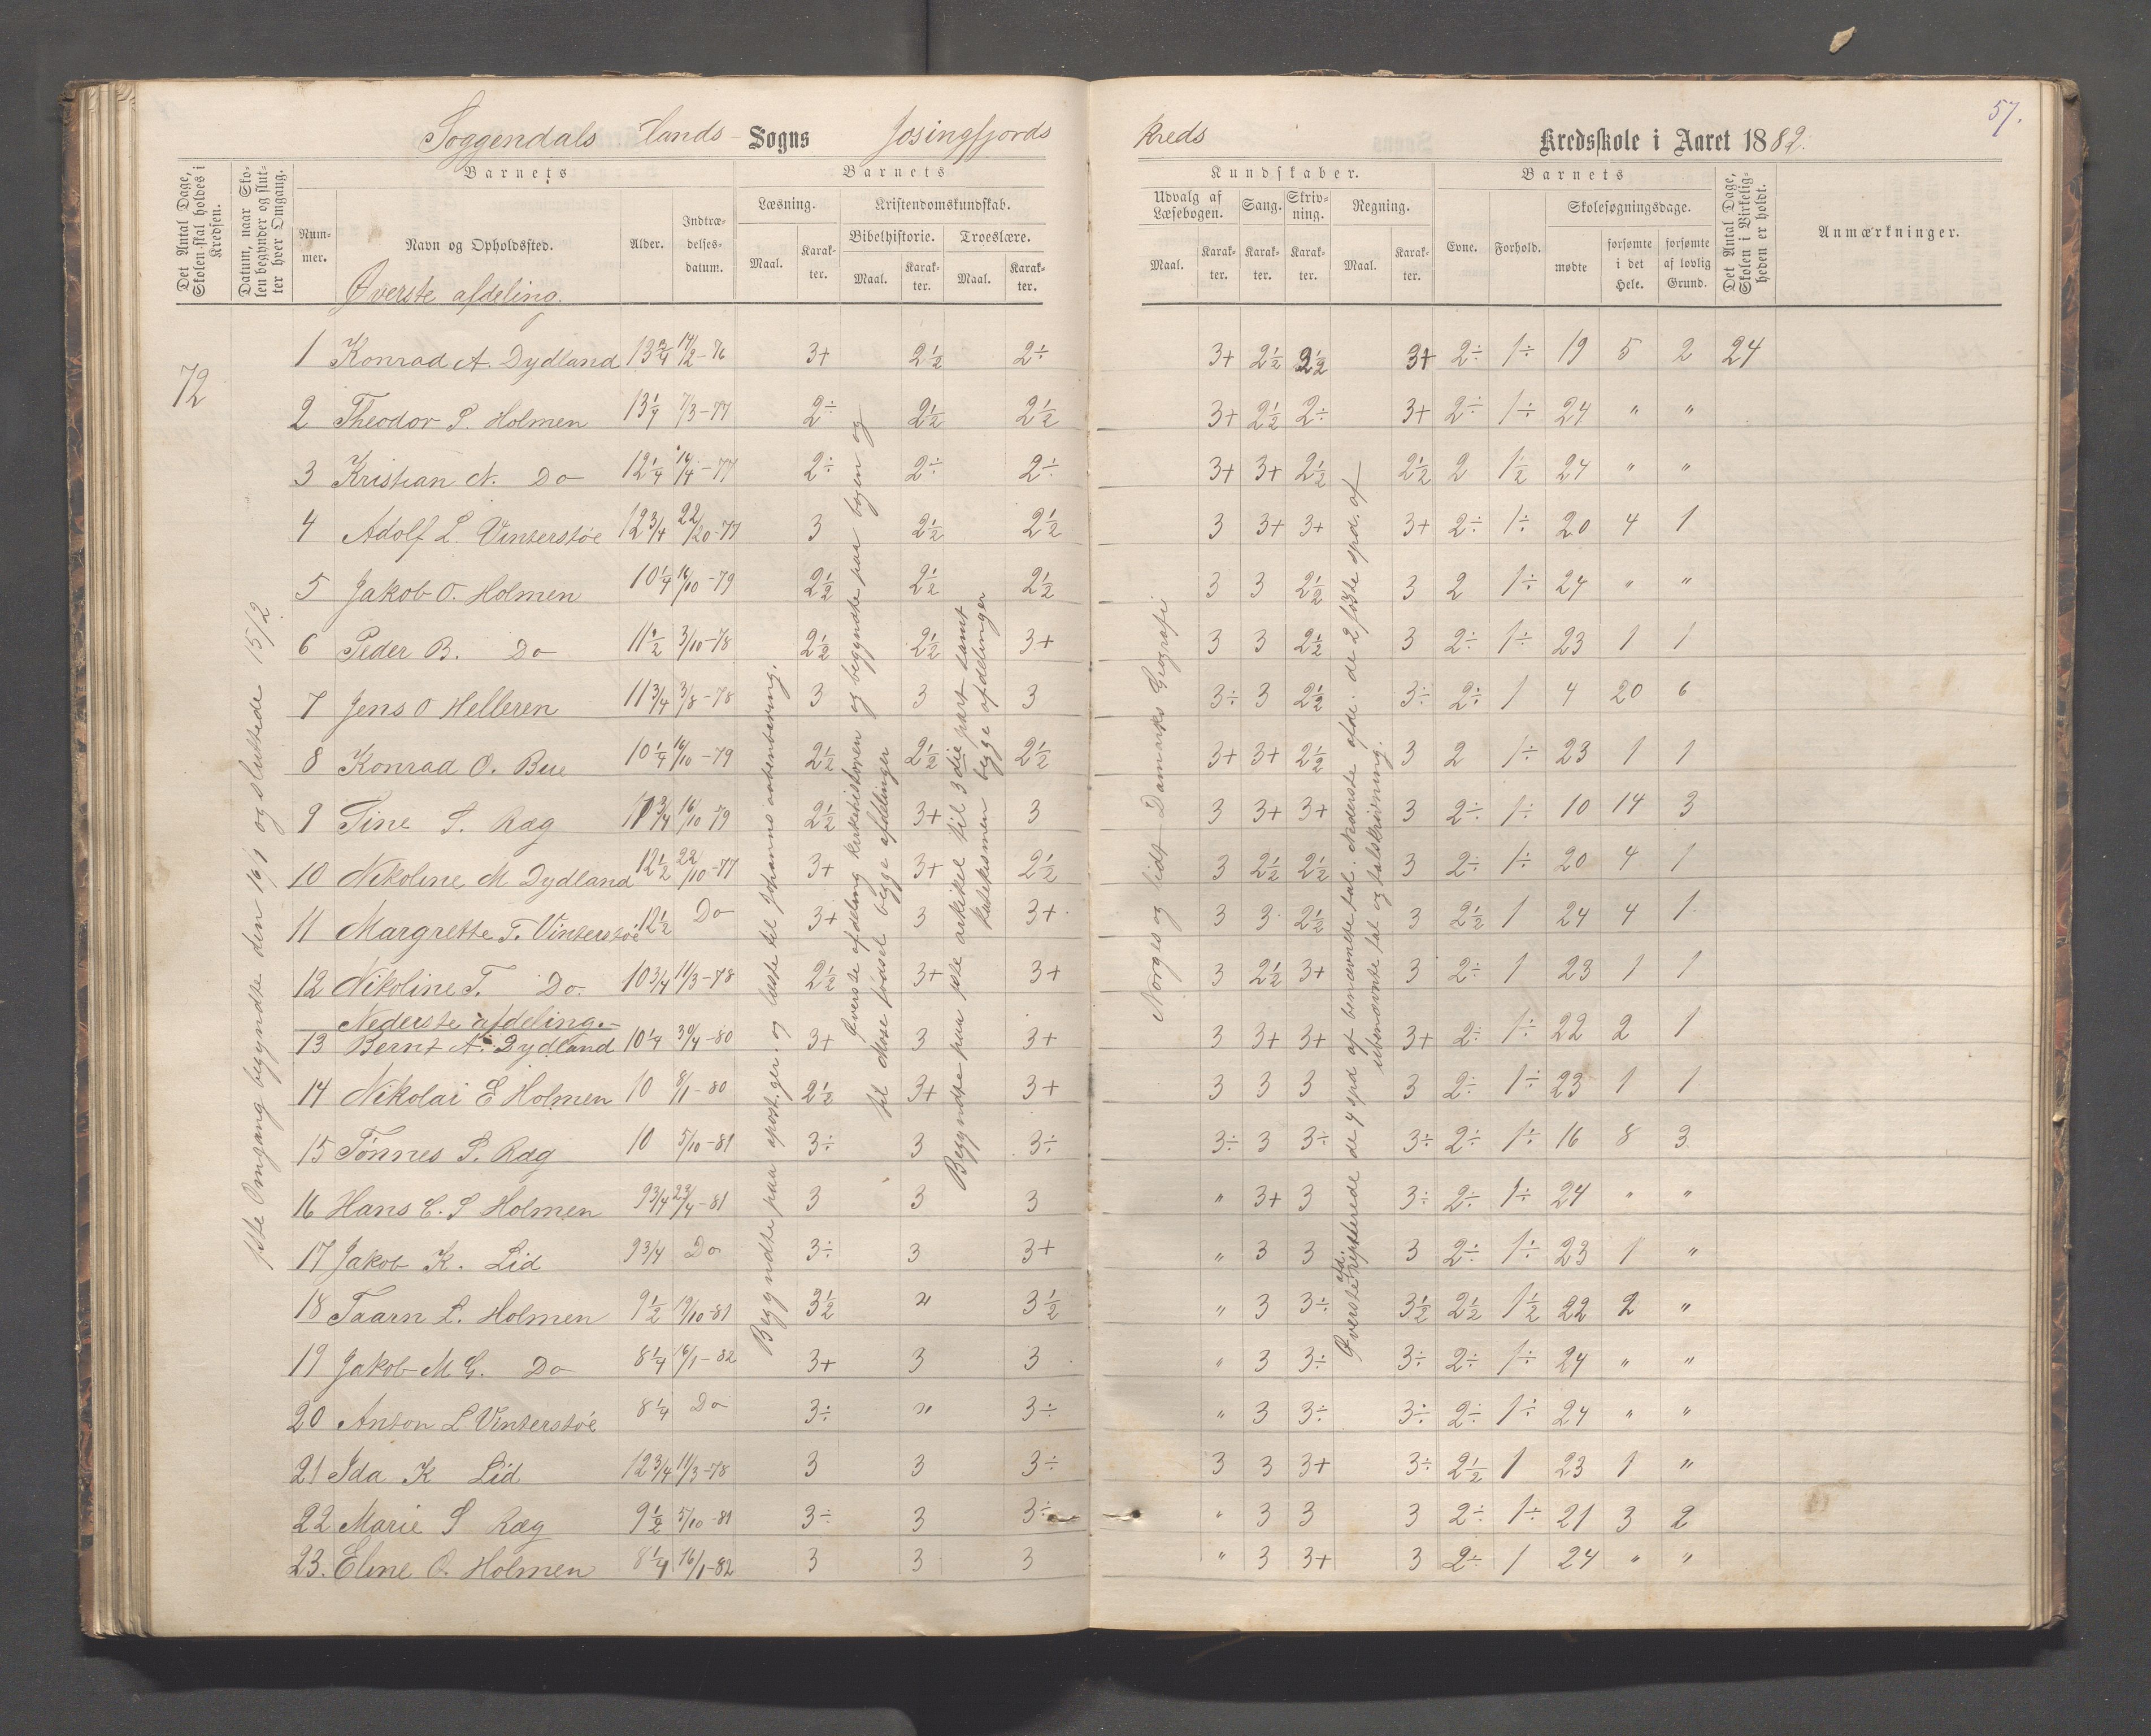 57.
Soggendals Lands- Sogns Josingfjords Kreds Kredsskole i Aaret 1882.
Det Antal Dage, Skolen skal holdes i Kredsen.
Datum, naar Skolen begynder og slutter hver Omgang.
Barnets
Barnets
Kundskaber.
Barnets
Det Antal Dage, Skolen i Virkeligheden er holdt.
Anmærkninger.
Nummer.
Navn og Opholdssted.
Alder.
Indtrædelses-datum.
Læsning.
Kristendomskundskab.
Udvalg af Læsebogen.
Sang.
Skrivning.
Regning.
Evne.
Forhold.
Skolesøgningsdage.
Bibelhistorie.
Troeslære.
Maal. Karakter. Maal. Karakter. Maal. Karakter.
Maal. Karakter. Karakter. Karakter. Maal. Karakter.
mødte
forsømte i det Hele.
forsømte af lovlig Grund.
Øverste afdeling.
72
1 Konrad A. Dydland 13 3/4 14/2-76 3+ 2½ 2÷ 3+ 2½ 2½ 3+ 2÷ 1÷ 19 5 2 24
2 Theodor S. Holmen 13¼ 7/3-77 2÷ 2½ 2½ 3+ 2½ 2÷ 3+ 2÷ 1÷ 24 " "
3 Kristian N. Do 12¼ 16/4-77 2÷ 2÷ 2÷ 3+ 3+ 2½ 2½ 2 1½ 24 " "
4 Adolf L. Vinterstøe 12 3/4 22/10-77 3 2½ 2½ 3 3+ 3+ 3+ 2÷ 1÷ 20 4 1
5 Jakob O. Holmen 10¼ 16/10-79 2½ 2½ 2½ 3 3 2½ 3 2 1÷ 24 " "
6 Peder B. Do 11½ 3/10-78 2½ 2½ 3+ 3 3 2½ 3 2÷ 1÷ 23 1 1
7 Jens O Helleren 11 3/4 3/8-78 3 3 3 3÷ 3 2½ 3÷ 2÷ 1 4 20 6
8 Konrad O. Bue 10¼ 16/10-79 2½ 2½ 2½ 3+ 3+ 2½ 3 2 1÷ 23 1 1
9 Tine S. Ræg 11 3/4 16/10-79 2½ 3+ 3 3 3+ 3+ 3 2÷ 1÷ 10 14 3
10 Nikoline M Dydland 12½ 22/10-77 3+ 3+ 2½ 3 2½ 2½ 3 2÷ 1÷ 20 4 1
11 Margrette T. Vinterstøe 12½ Do 3+ 3 3+ 3 3 2½ 3 2½ 1 24 4 1
12 Nikoline T. Do. 10 3/4 11/3-78 2½ 3+ 3+ 3 2½ 3+ 3 2÷ 1 23 1 1
Nederste afdeling.
13 Bernt A. Dydland 10¼ 30/4-80 3+ 3 3+ 3 3+ 3+ 3+ 2÷ 1÷ 22 2 1
14 Nikolai E Holmen 10 8/1-80 2½ 3+ 3+ 3 3 3 3 2÷ 1÷ 23 1 1
15 Tønnes S. Ræg 10 5/10-81 3÷ 3 3÷ 3÷ 3 3÷ 3÷ 2÷ 1÷ 16 8 3
16 Hans C. S Holmen 9 3/4 23/4-81 3 3 3 " 3+ 3 3÷ 2÷ 1÷ 24 " "
17 Jakob K. Lid 9 3/4 Do 3÷ 3 3+ " 3 3 3 2÷ 1÷ 23 1 "
18 Taarn L. Holmen 9½ 19/10-81 3½ " 3½ " 3 3÷ 3½ 2½ 1½ 22 2 "
19 Jakob M G. Do 8¼ 16/1-82 3+ 3 3 " 3 3÷ 3÷ 2÷ 1÷ 24 " "
20 Anton L Vinterstøe 8¼ Do 3÷ " 3÷ " 3 3÷ 3÷ 2÷ 1÷ 24 " "
21 Ida K Lid 12 3/4 11/3-78 3 3 3÷ 3 3 3+ 3÷ 2½ 1 23 1 "
22 Marie S Ræg 9½ 5/10-81 3÷ 3 3÷ " 3 3 3 2÷ 1÷ 21 3 2
23. Eline O. Holmen 8¼ 16/1-82 3 3 3 " 3 3+ 3 2÷ 1 24 " "
1ste Omgang begyndte den 16/1 og sluttede 15/2
Begyndte paa apost. ger. og læste til Johans aabenbaring.
Øverste afdeling kirkehistorien og begyndte paa bogen og
til Mose fødsel begge afdelinger
Begyndte paa 1ste artikel til 3die part samt
begge afdelinger
Norges og lidt Danmarks Geografi
Øverste afd. repeterede de 4 spd af benævnte tal. Nederste afde. de 2 første spd. af
ubenævnte tal og talskrivning.